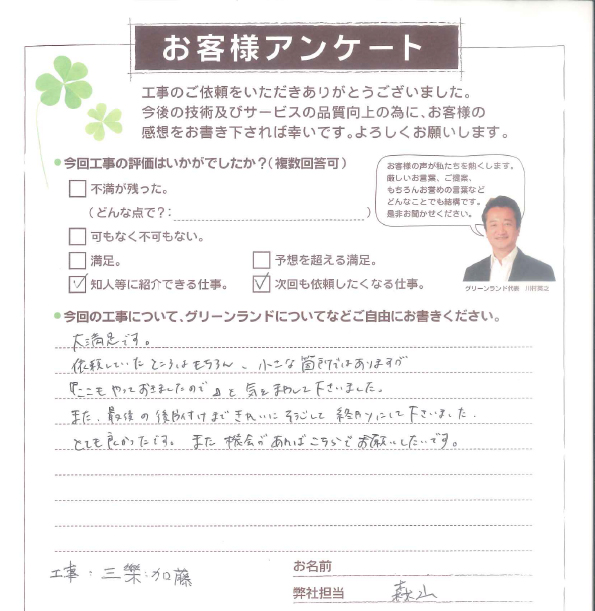 お客様アンケート
工事のご依頼をいただきありがとうございました。
今後の技術及びサービスの品質向上の為に、お客様の
感想をお書き下されば幸いです。よろしくお願いします。
●今回工事の評価はいかがでしたか？(複数回答可)
不満が残った。
(どんな点で？: )
可もなく不可もない。
満足。
予想を超える満足。
知人等に紹介できる仕事。
次回も依頼したくなる仕事。
お客様の声が私たちを熱くします。
厳しいお言葉、ご提案、
もちろんお誉めの言葉など
どんなことでも結構です。
是非お聞かせください。
グリーンランド代表
●今回の工事について、グリーンランドについてなどご自由にお書きください。
大満足です。
依頼していたところはもちろん、小さな箇所ではありますが
『ここもやっておきましたので』と気をまわして下さいました。
また、最後の後片付けまできれいにそうじして終わりにして下さいました。
とても良かったです。また機会があればこちらでお願いしたいです。
工事・三樂・加藤
お名前
弊社担当